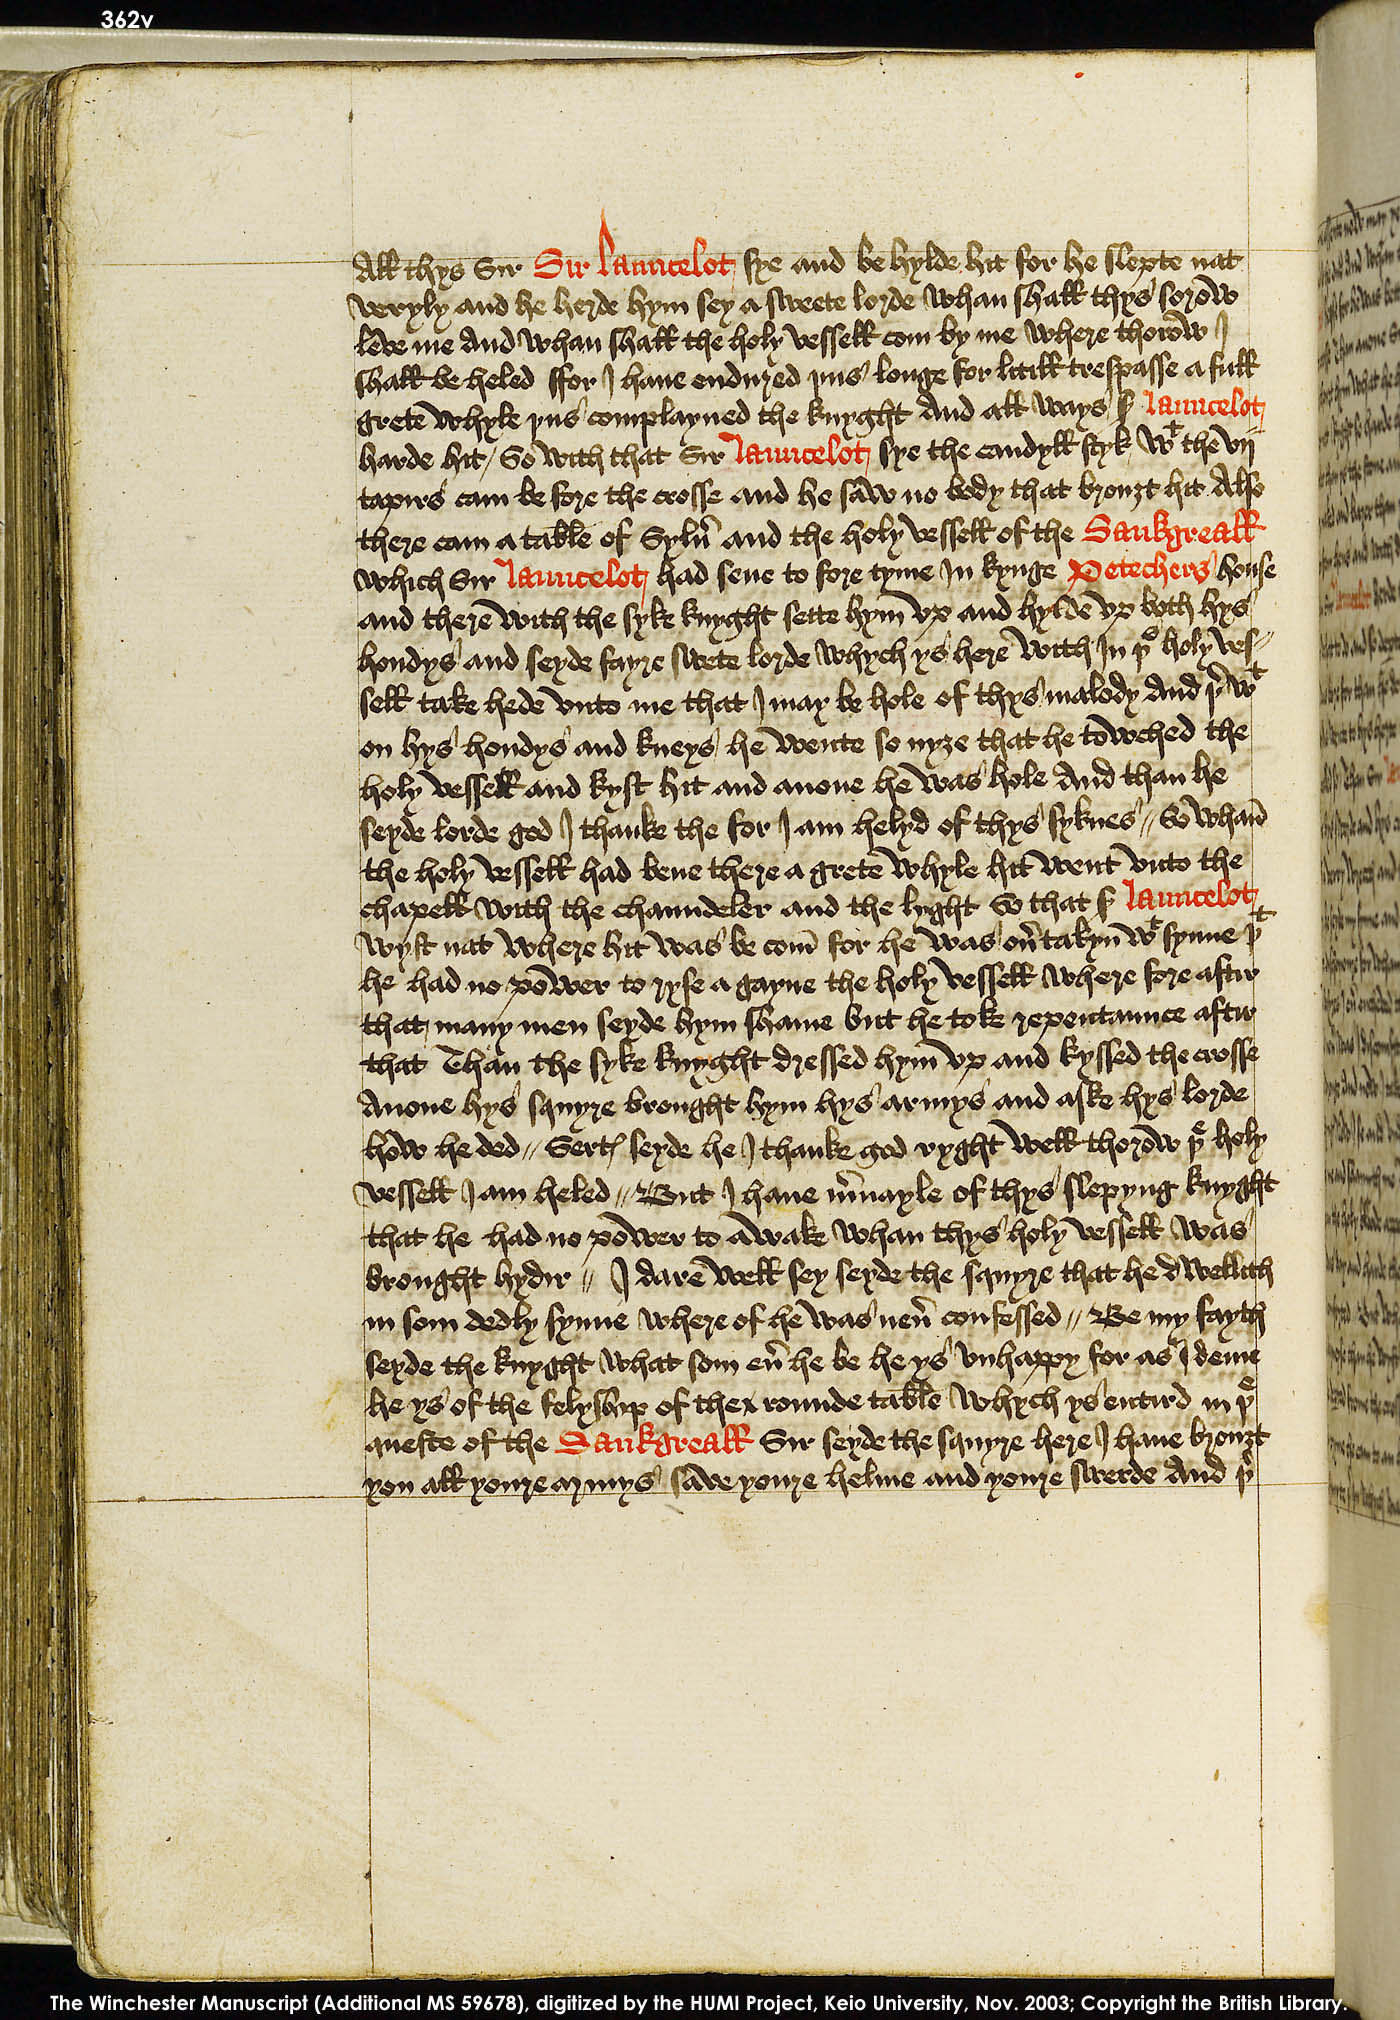 362v
All thys Sir Sir Launcelot sye and be hylde hit for he slepte nat
veryly and he herde hym sey a sweete lorde whan shall thys sorow
leve me And whan shall the holy vessell com by me where thorow I
shall be heled ffor I haue endured þus longe for litill trespasse a full
grete whyle þus complayned the knyght And all ways sʳ Launcelot
harde hit / So with that Sir Launcelot sye the candyll styk wᵗ the vij
tapirs cam be fore the crosse and he saw no body that brouȝt hit Also
there cam a table of Sylu̅ and the holy vessell of the Sankgreall
which Sir Launcelot had sene to fore tyme In kynge Petechers house
and there with the syke knyght sette hym vp and hylde vp both hys
hondys and seyde fayre swete lorde whych ys here with In þᵉ holy ves〃
sell take hede vnto me that I may be hole of thys malody And þʳ wᵗ
on hys hondys and kneys he wente so nyȝe that he towched the
holy vessell and kyst hit and anone he was hole And than he
seyde lorde god I thanke the for I am helyd of thys syknes 〃 So whan̅
the holy vessell had bene there a grete whyle hit went vnto the
chapell with the chaundeler and the lyght So that sʳ Launcelot
wyst nat where hit was be com̅ for he was ou̅takyn wᵗ synne þᵗ
he had no power to ryse a gayne the holy vessell where fore aftir
that many men seyde hym shame but he toke repentaunce aftir
that Than the syke knyght dressed hym vp and kyssed the crosse
Anone hys squyre brought hym hys armys and aske hys lorde
how he ded 〃 Sertꝭ seyde he I thanke god ryght well thorow þᵉ holy
vessell I am heled 〃 But I haue m̅vayle of thys slepyng knyght
that he had no power to awake whan thys holy vessell was
brought hydir 〃 I dare well sey seyde the squyre that he dwellith
in som dedly synne where of he was neu̅ confessed 〃 Be my fayth
seyde the knyght what som eu̅ he be he ys vnhappy for as I deme
he ys of the felyship of the rounde table whych ys entird in þᵉ
queste of the Sankgreall Sir seyde the squyre here I haue brouȝt
you all youre armys save youre helme and youre swerde And þʳ
The Winchester Manuscript (Additional MS 59678), digitized by the HUMI Project, Keio University, Nov. 2003; Copyright the British Library.